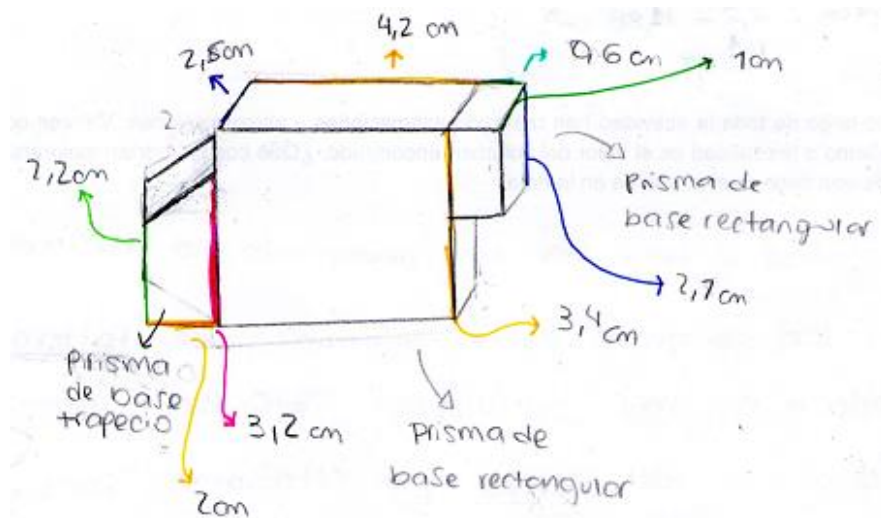 4,2 cm
0,6 cm
1cm
2
2,2cm
prisma de
base rectangular
3,4 cm
prisma
de base
trapecio
3,2 cm
Prisma de
base rectangular
2cm